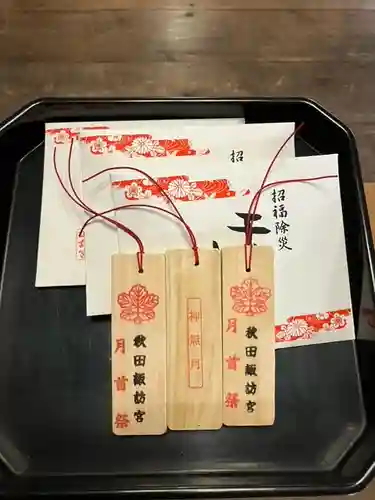 招
招福除災
秋田諏訪宮
月首祭
神無月
秋田諏訪宮
月首祭